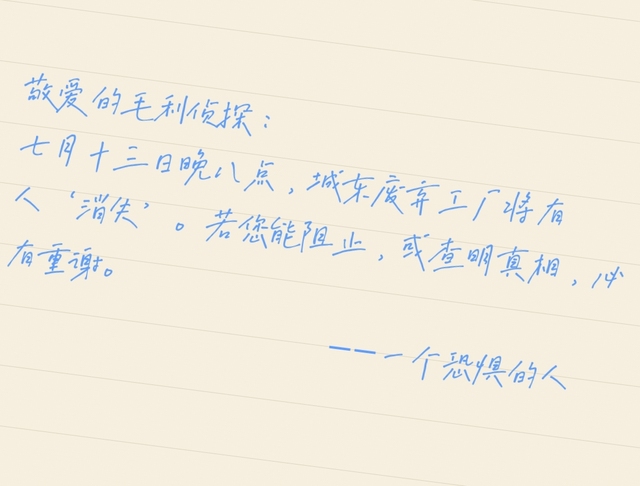 敬爱的毛利侦探：
七月十三日晚八点，城东废弃工厂将有
人‘消失’。若您能阻止，或查明真相，必
有重谢。
———一个恐惧的人